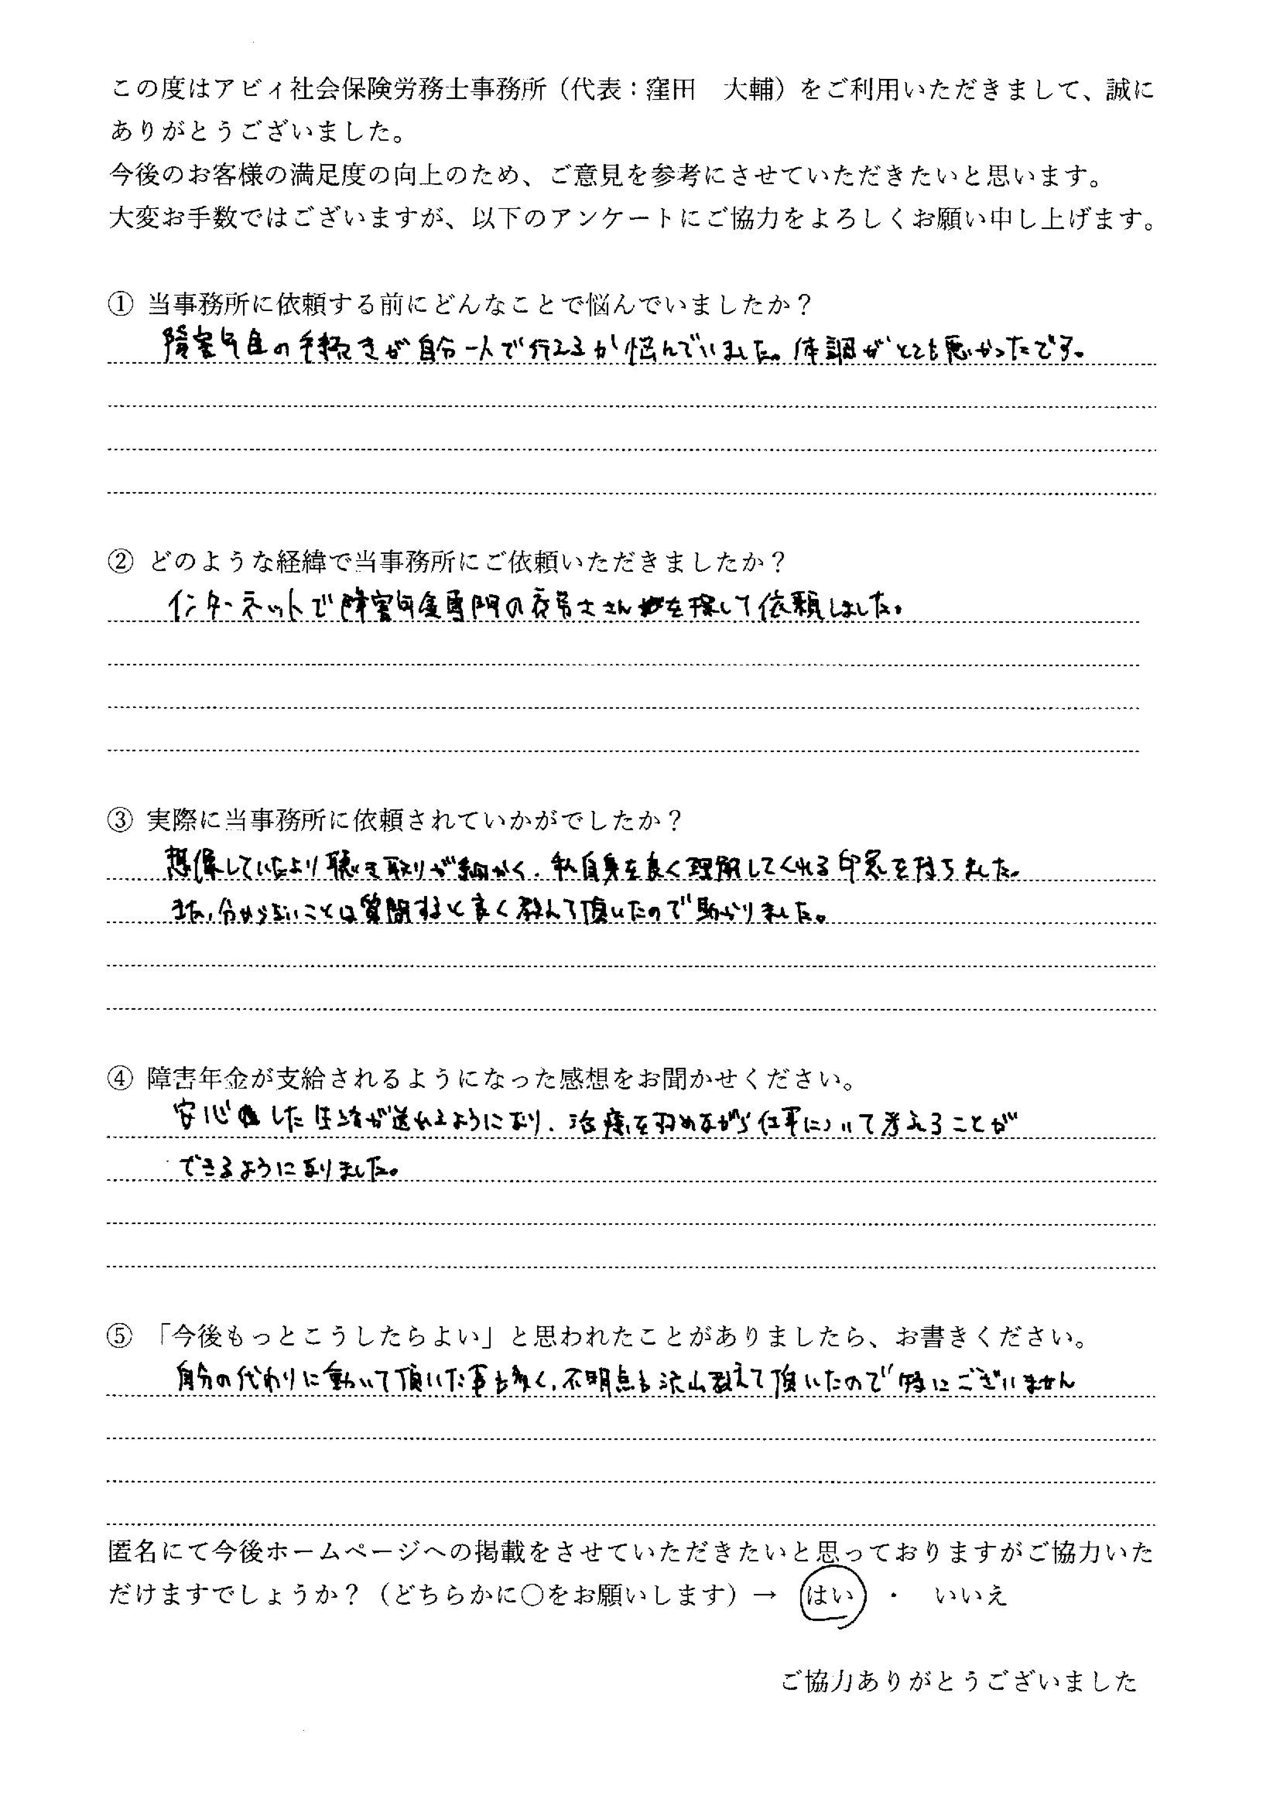 この度はアビィ社会保険労務士事務所（代表：窪田　大輔）をご利用いただきまして、誠に
ありがとうございました。
今後のお客様の満足度の向上のため、ご意見を参考にさせていただきたいと思います。
大変お手数ではございますが、以下のアンケートにご協力をよろしくお願い申し上げます。
① 当事務所に依頼する前にどんなことで悩んでいましたか？
障害年金の手続きが自分一人で行えるか悩んでいました。体調がとても悪かったです。
② どのような経緯で当事務所にご依頼いただきましたか？
インターネットで障害年金専門の社労士さんを探して依頼しました。
③ 実際に当事務所に依頼されていかがでしたか？
想像していたより聴き取りが細かく、私自身を良く理解してくれる印象を持ちました。
また、分からないことは質問すると良く教えて頂いたので助かりました。
④ 障害年金が支給されるようになった感想をお聞かせください。
安心した生活が送れるようになり、治療を進めながら仕事について考えることが
できるようになりました。
⑤ 「今後もっとこうしたらよい」と思われたことがありましたら、お書きください。
自分の代わりに動いて頂いた事も多く、不明点も沢山教えて頂いたので特にございません
匿名にて今後ホームページへの掲載をさせていただきたいと思っておりますがご協力いた
だけますでしょうか？（どちらかに〇をお願いします）→　はい　・　いいえ
ご協力ありがとうございました